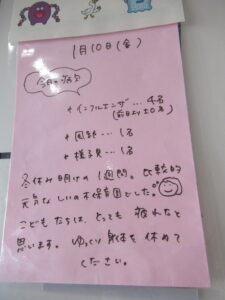 1月10日(金)
今日の病欠
*インフルエンザ…4名
(前日より±0名)
*風邪…1名
*様子見…1名
冬休み明けの1週間。比較的
元気な の保育園でした。
こどもたちは、とっても疲れたと
思います。ゆっくり身体を休めて
ください。